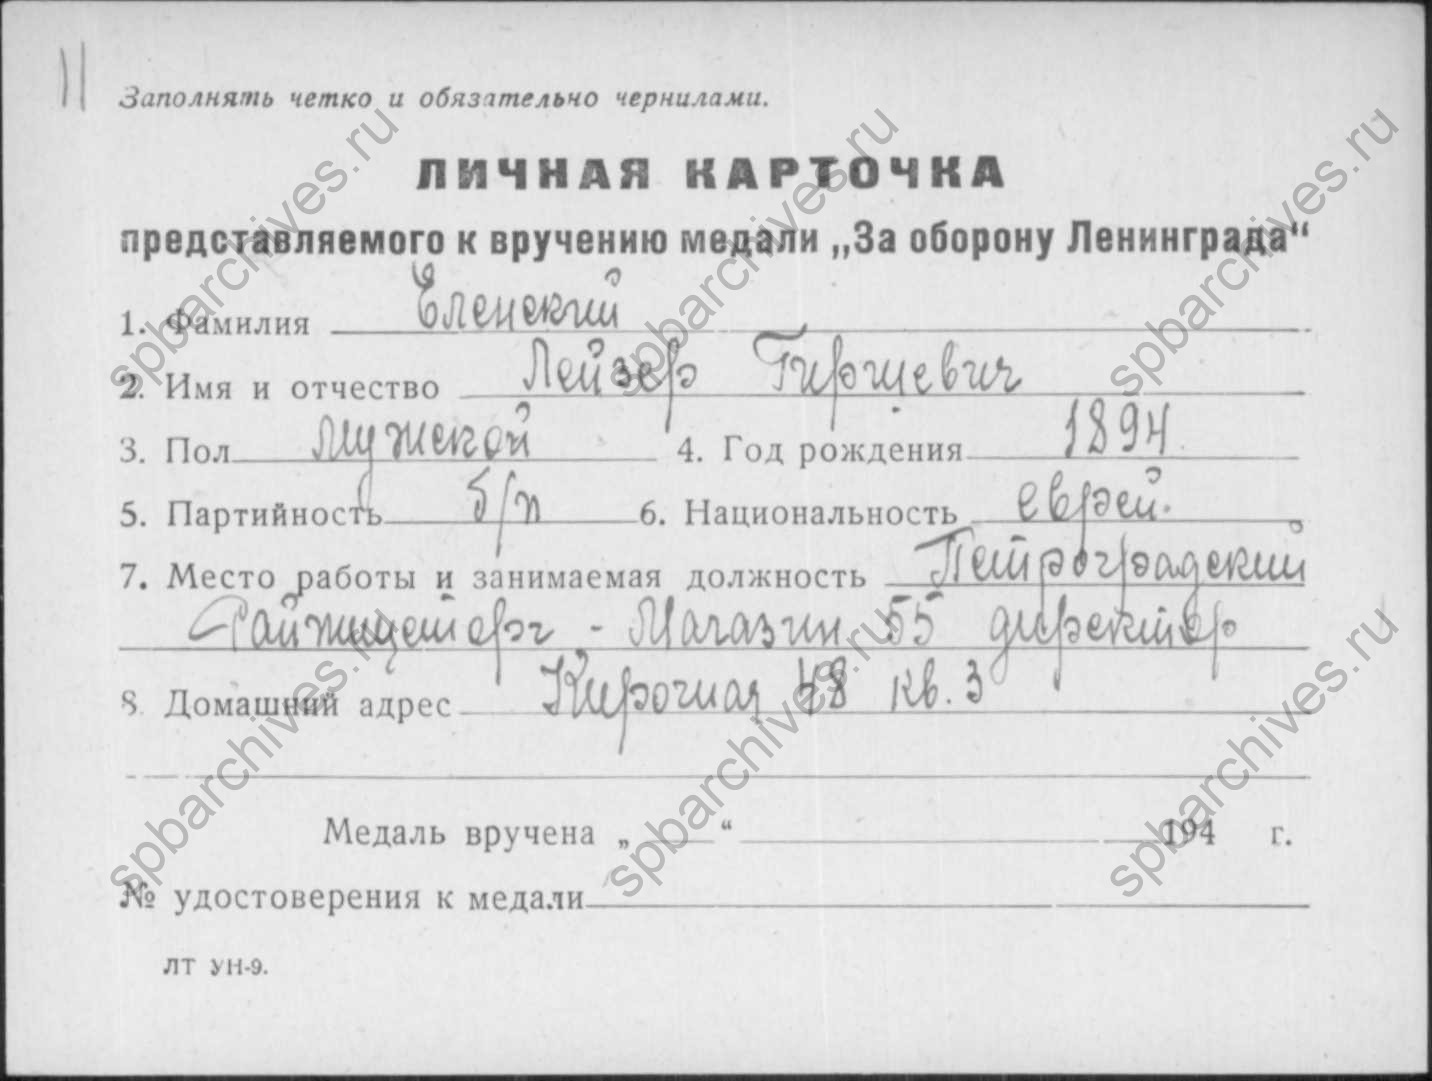 11
Заполнять четко и обязательно чернилами.
ЛИЧНАЯ КАРТОЧКА
представляемого к вручению медали „За оборону Ленинграда“
1. Фамилия Еленский
2. Имя и отчество Лейзер Гиршевич
3. Пол Мужской 4. Год рождения 1894
5. Партийность б/п 6. Национальность еврей.
7. Место работы и занимаемая должность Петроградский
Райпищеторг - Магазин 55 директор
8. Домашний адрес Кирочная 48 кв. 3
Медаль вручена „ “ 194 г.
№ удостоверения к медали
ЛТ УН-9.
spbarchives.ru
spbarchives.ru
spbarchives.ru
spbarchives.ru
spbarchives.ru
spbarchives.ru